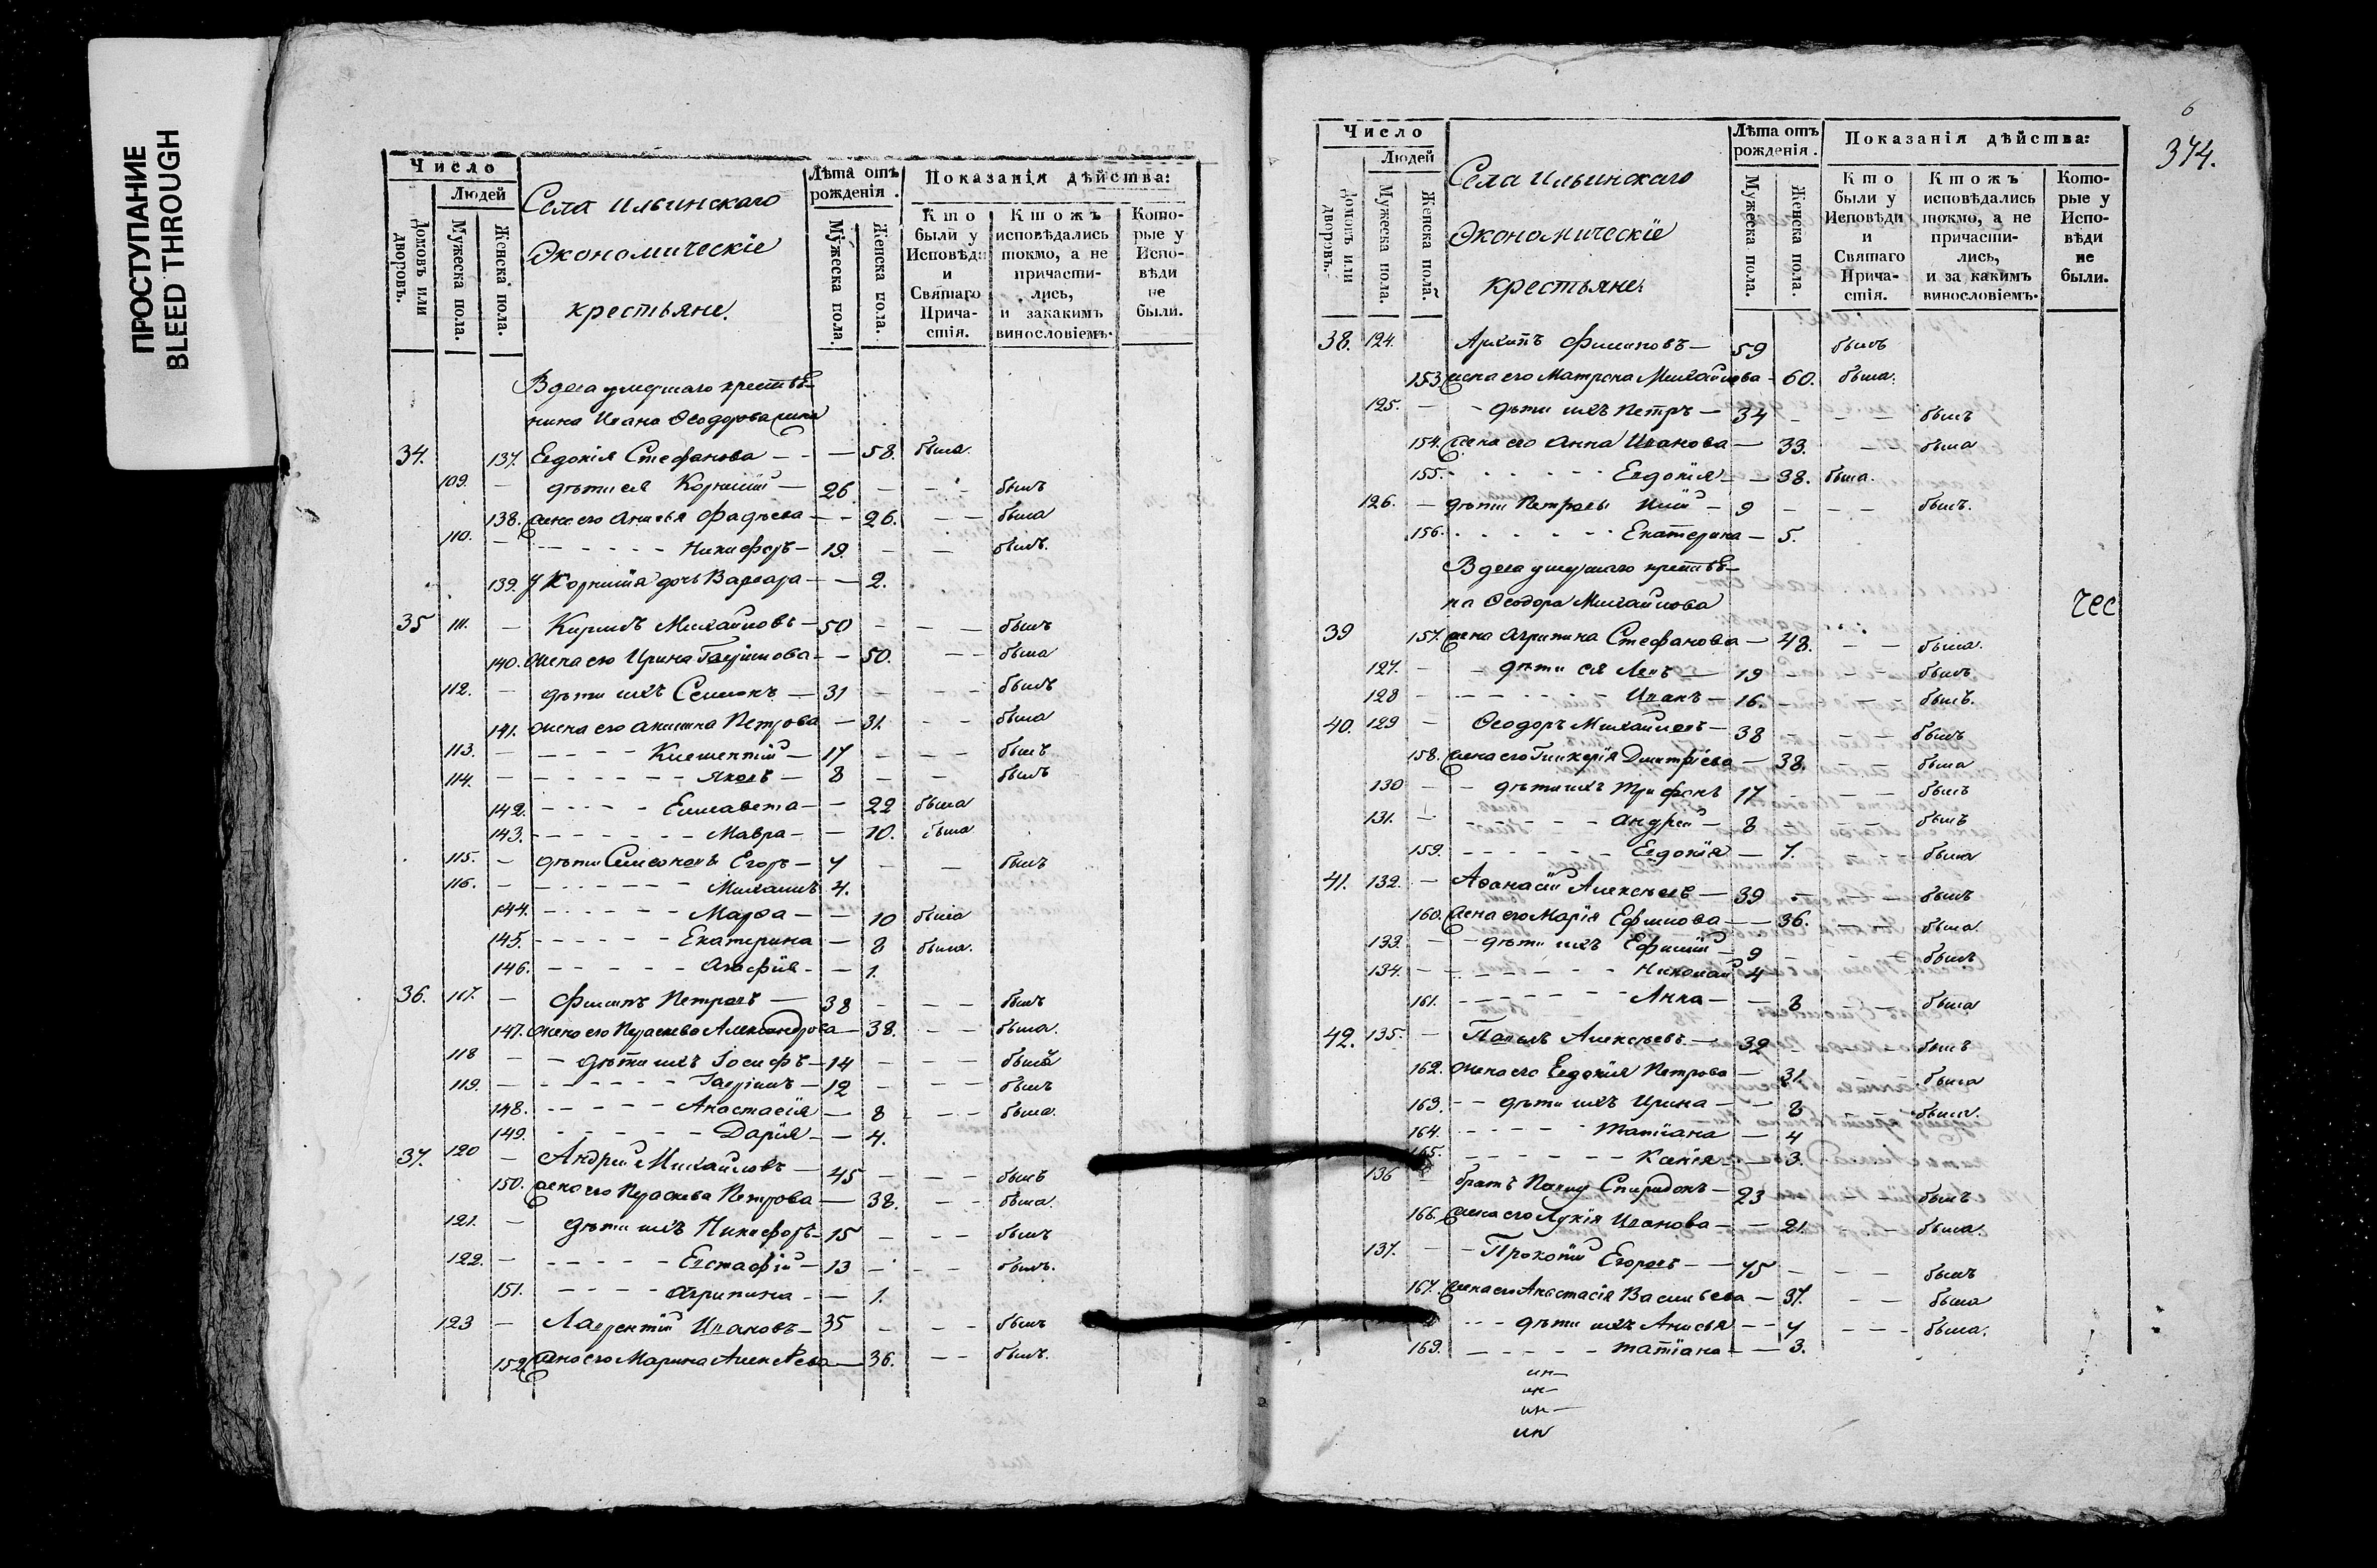 ПРОСТУПАНИЕ
BLEED THROUGH
Число
Людей
Домовъ или дворовъ.
Мужеска пола.
Женска пола.
Села Ильинскаго
Экономическіе
крестьяне.
Лѣта отъ рожденія.
Мужеска пола.
Женска пола.
Показанія дѣйства:
Кто были у Исповѣди и Святаго Причастія.
Ктожъ исповѣдались токмо, а не причастились, и закакимъ винословіемъ.
Которые у Исповѣди не были.
Вдова умершаго крестья-
нина Ивана Ѳеодорова жена
34. 137. Евдокія Стефанова - - — 58. была
109. — дѣти ея Корнилій — 26 — - - - былъ
138. жена его Анисья Фадѣева — - 26. — — была
110. — - - - - - Никифоръ — 19. — — былъ.
139. У Корнилія дочь Варвара — — 2.
35 111. — Кирилъ Михайловъ — 50 - - — былъ
140. жена его Ирина Гавріилова - — 50. — — была
112. — дѣти ихъ Семіонъ — 31 — - - былъ
141. жена его Акилина Петрова — 31. - - была
113. — - - - - Климентій — 17 - - - - былъ
114. — - - - - - - Яковъ — 8 — — былъ
142. - - - - - Елисавета - — 22 была
143. - - - - - - - Мавра - — 10. была
115. — дѣти Симеоновы Егоръ — 7 — — былъ
116. — - - - - - - Михаилъ 4.
144. - - - - - - Марѳа — — 10 была
145. - - - - - - Екатерина — 8 была.
146. - - - - - Агафія - — 1.
36. 117. — Филипъ Петровъ — 38 - - — былъ
147. жена его Параскева Александрова — 38. - — была.
118 — - дѣти ихъ Іосифъ — 14 — - — былъ
119. — - - - - - - Гавріилъ — 12 — — — былъ
148. - - - - - Анастасія — 8 - - - была.
149. - - - - - - Дарія - — 4.
37. 120 — Андрей Михайловъ — 45 — - — былъ
150. жена его Параскева Петрова — 38. - — была.
121. — дѣти ихъ Никифоръ — 15 — - — былъ
122. — - - - - - Евстафій — 13 — - — былъ.
151. - - - - Агрипина - — 1.
123 — Лаврентій Ивановъ — 35 — - — былъ
152. жена его Марина Алексѣева — 36. - — былъ.
6
374.
Число
Людей
Домовъ или дворовъ.
Мужеска пола.
Женска пола.
Села Ильинскаго
Экономическіе
крестьяне.
Лѣта отъ рожденія.
Мужеска пола.
Женска пола.
Показанія дѣйства:
Кто были у Исповѣди и Святаго Причастія.
Ктожъ исповѣдались токмо, а не причастились, и за какимъ винословіемъ.
Которые у Исповѣди не были.
38. 124. Архипъ Филиповъ — 59 былъ
153. жена его Матрона Михайлова - 60. была.
125. — - дѣти ихъ Петръ — 34 - - — былъ
154. жена его Анна Иванова — 33. - — была
155. - - - - - - Евдокія — — 38. была.
126. — дѣти Петровы - 9 - - — былъ.
156. - - - - - - Екатерина — 5.
Вдова умершаго крестья-
на Ѳеодора Михайлова
39 157. жена Агрипина Стефанова — 48. - — была.
127. — - дѣти ея Левъ — 19 - - - былъ
128 — - - - - - Иванъ — 16. - - — былъ.
40. 129 — Ѳеодоръ Михайловъ — 38 - - — былъ
158. жена его Гликерія Димитріева — 38. — — была
130 — - дѣти ихъ Трифонъ 17 - - — былъ
131. — - - - - - Андрей — 8 - - — былъ
159. - - - - - - Евдокія — 7. - - - была
41. 132. — Аѳанасій Алексѣевъ — 39 - - — былъ
160. жена его Марія Ефимова — — 36. — — была
133. — - дѣти ихъ Ефимій — 9 - - — былъ
134. — - - - - - - Николай 4
161. - - - - - - - Анна — — 8 - — была
42. 135. — Павелъ Алексѣевъ — 32 - - — былъ
162. жена его Евдокія Петрова — 31 - - была
163. - - дѣти ихъ Ирина — — 8 - — была.
164. - - - - - Татіана — 4
165. - - - - - - — 3.
136 — братъ Павлу Спиридонъ — 23 - — былъ
166. жена его Лукія Иванова — — 21. - — была.
137. — - Прокопій Егоровъ — — 75 - - — былъ
167. жена его Анастасія Васильева — 37. - — была
- - - дѣти ихъ Анисья — - 7 - - - была.
169. - - - - - Татіана — — 3.